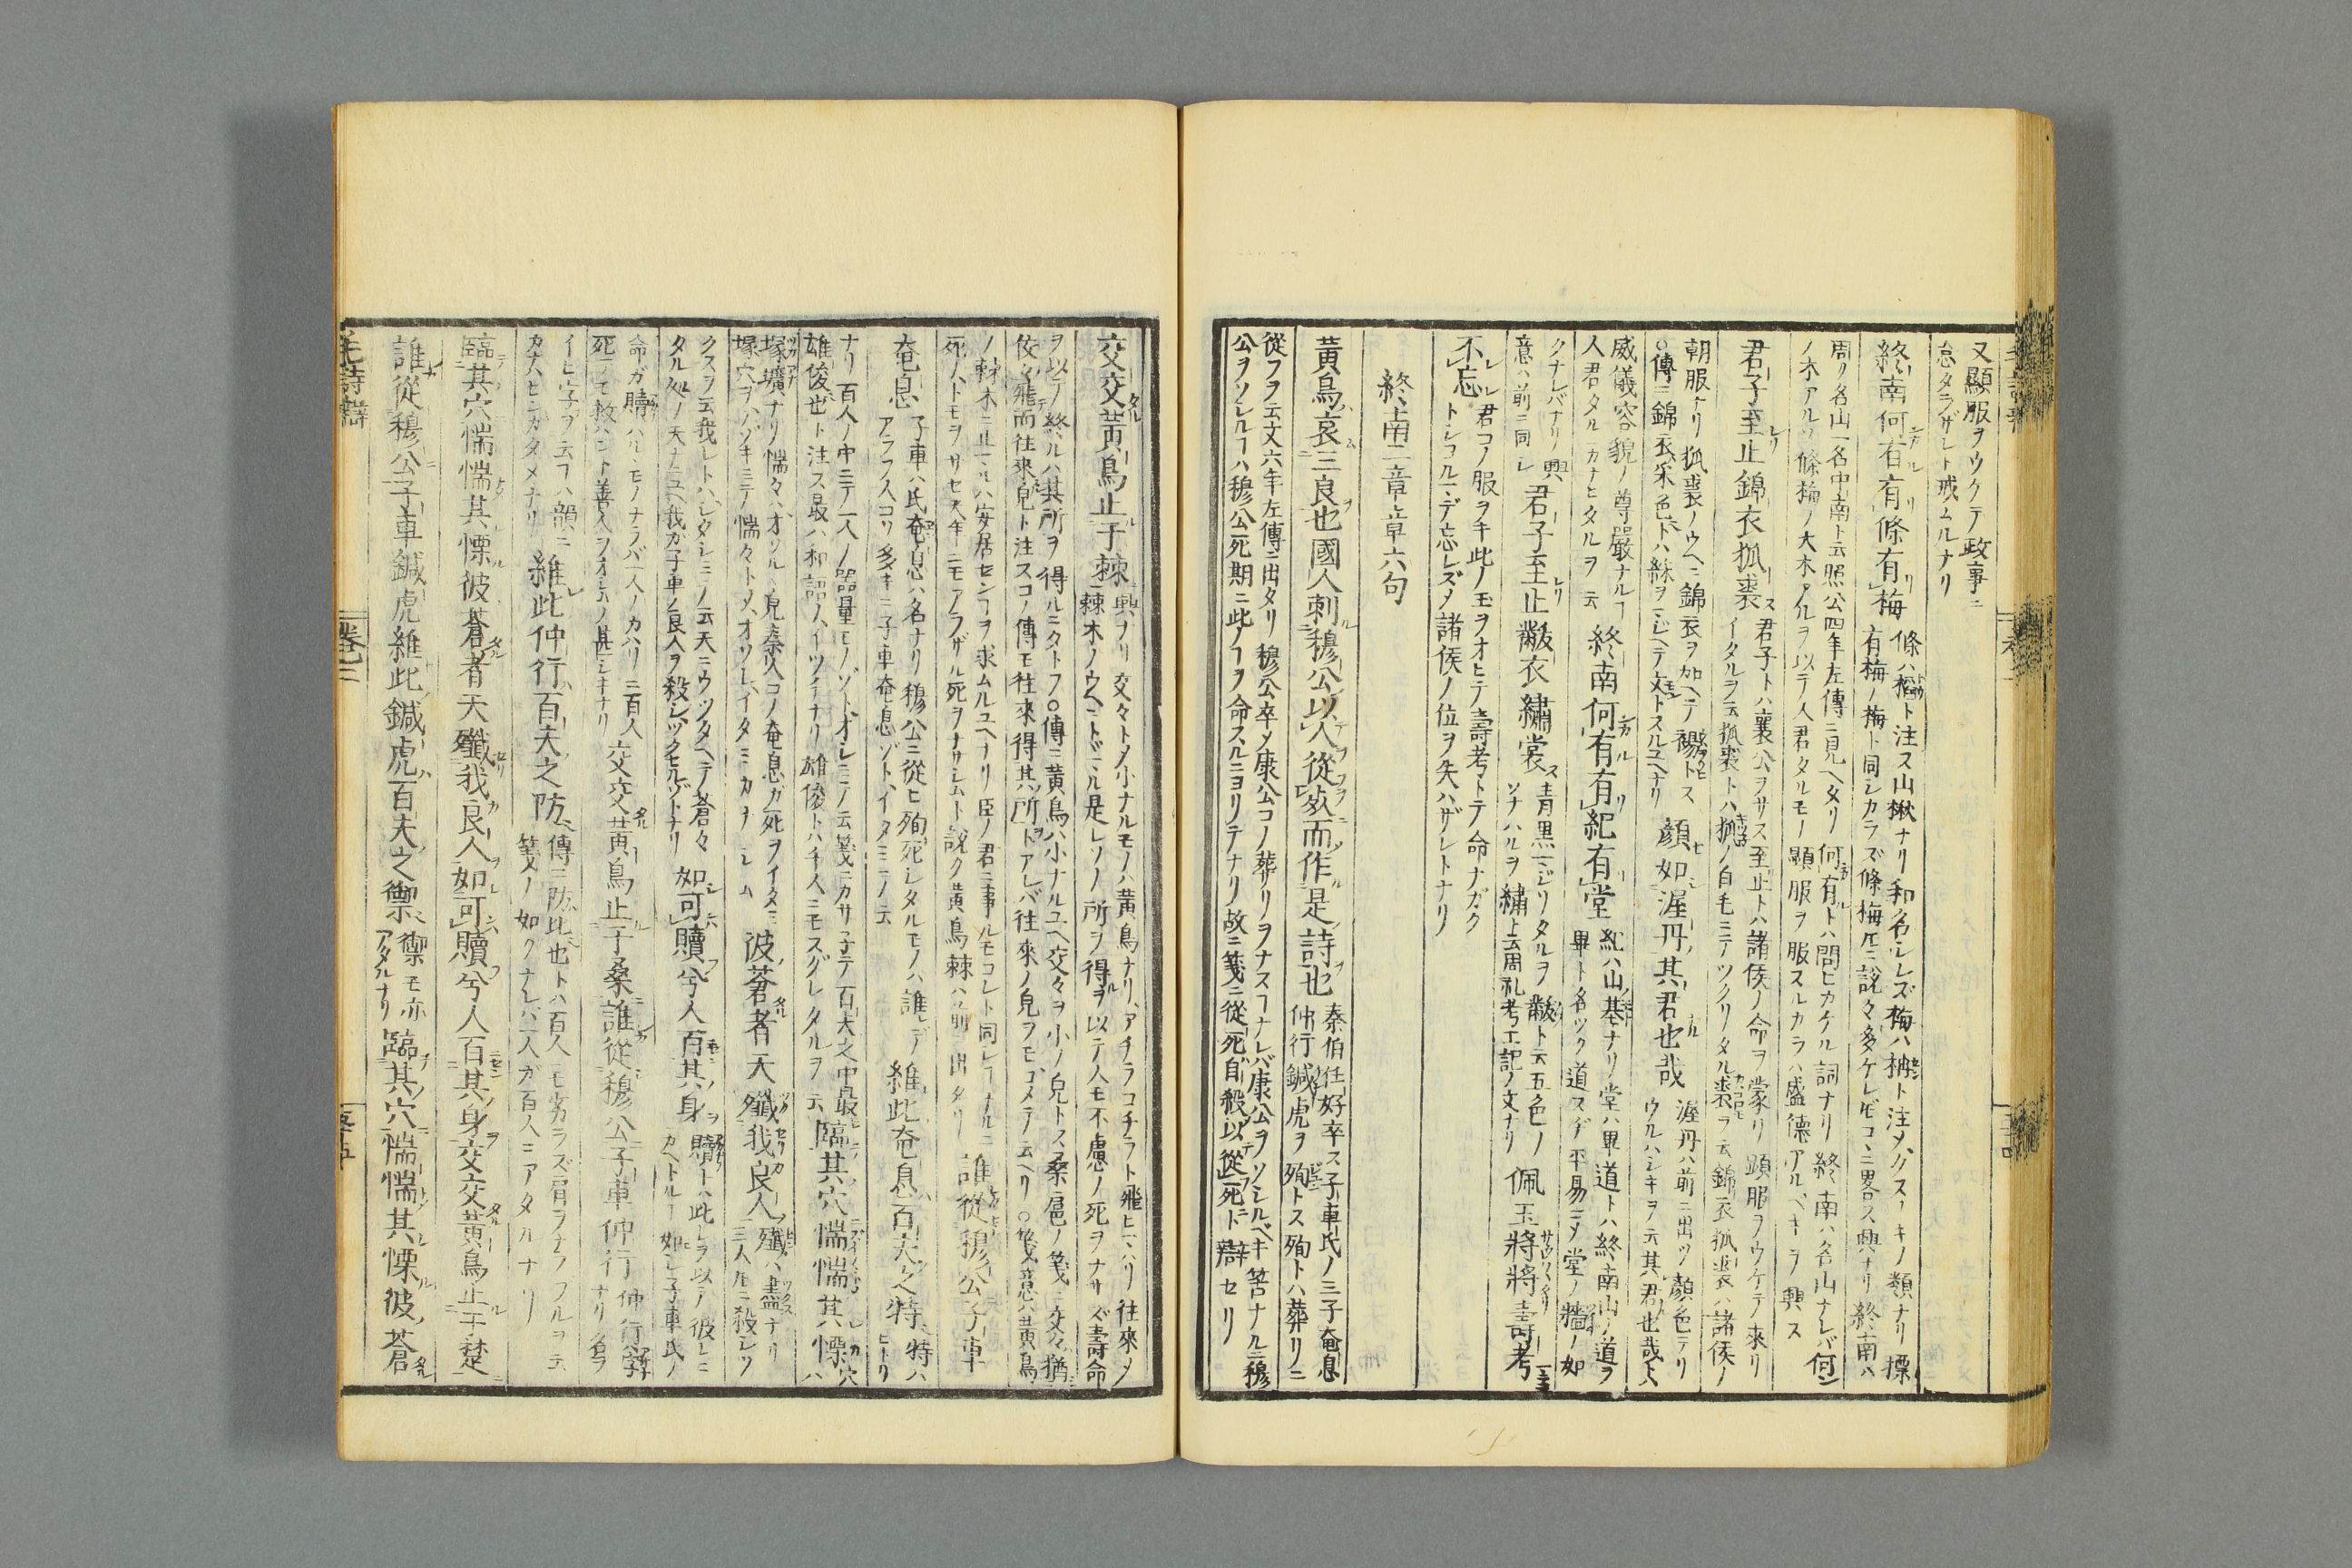 又顯服ヲウケテ政事ニ
怠タラザレト戒ムルナリ
終南何有有條有梅
條ハ稻ト注ス山楸ナリ和名シレズ梅ハ柟ト注メクスノキノ類ナリ摽
有梅ノ梅ト同シカラズ條梅ニ說々多ケレドコヽニ畧ス興ナリ終南ハ
周リ名山一名中南ト云照公四年左傳ニ見ヘタリ何有トハ問ヒカケル詞ナリ終南ハ名山ナレバ何ン
ノ木アルソ條梅ノ大木アルヲ以テ人君タルモノ顯服ヲ服スルカラハ盛德アルベキヲ興ス
君子至止錦衣狐裘
君子トハ襄公ヲサス至止トハ諸侯ノ命ヲ蒙リ顯服ヲウケテ來リ
イタルヲ云狐裘トハ狐ノ白毛ニテツクリタル裘ヲ云錦衣狐裘ハ諸侯ノ
朝服ナリ狐裘ノウヘニ錦衣ヲ加ヘテ裼トス
○傳ニ錦衣采色トハ絲ヲマジヘテ文トスルユヘナリ
顏如渥丹其君也哉
渥丹ハ前ニ出ツ顏色テリ
ウルハシキヲ云其君也哉ト
威儀容貌ノ尊嚴ナルヿ
人君タルニカナヒタルヲ云
終南何有有紀有堂
紀ハ山基ナリ堂ハ畢道トハ終南山ノ道ヲ
畢ト名ツク道スヂ平易ニメ堂ノ牆ノ如
クナレバナリ興
意ハ前ニ同シ
君子至止黻衣繡裳
青黑マジリタルヲ黻ト云五色ノ
ソナハルヲ繡ト云周礼考工記ノ文ナリ
佩玉將將壽考
不忘
君コノ服ヲキ此ノ玉ヲオヒテ壽考トテ命ナガク
トシコルマデ忘レズメ諸侯ノ位ヲ失ハザレトナリ
終南二章章六句
黃鳥哀三良也國人刺穆公以人從死而作是詩也
秦伯任好卒ス子車氏ノ三子奄息
仲行鍼虎ヲ殉トス殉トハ葬リニ
從フヲ云文六年左傳ニ出タリ穆公卒メ康公コノ葬リヲナスヿナレバ康公ヲソシルベキ筈ナルニ穆
公ヲソシルヿハ穆公死期ニ此ノヿヲ命スルニヨリテナリ故ニ箋ニ從死自殺以從死ト辯セリ
交交黃鳥止于棘
興ナリ交々トメ小ナルモノハ黃鳥ナリアチラコチラト飛ヒマハリ往來メ
棘木ノウヘニトドマル是レソノ所ヲ得ヲ以テ人モ不慮ノ死ヲナサズ壽命
ヲ以テ終ルハ其所ヲ得ルニタトフ○傳ニ黃鳥ハ小ナルユヘ交々ヲ小ノ皃トス桑扈ノ箋ニ交々猶
佼々飛而往來皃ト注スコノ傳モ往來得其所トアレバ往來ノ皃ヲモコメテ云ヘリ○箋意ハ黃鳥
ノ棘木ニ止マルハ安居センヿヲ求ムルユヘナリ臣ノ君ニ事ルモコレト同シヿナルニ
死ノトモヲサセ天年ニモアラザル死ヲナサシムト說ク黃鳥棘ハ前ニ出タリ
誰從穆公子車
奄息
子車ハ氏奄息ハ名ナリ穆公ニ從ヒ殉死シタルモノハ誰ゾ
アラフ人コソ多キニ子車奄息ゾトイタミテ云
維此奄息百夫之特
特ハ
ヒトリ
ナリ百人ノ中ニテ一人ノ器量モノゾトオシミテ云箋ニカサ子テ百夫之中最
雄俊也ト注ス最ハ和語ノイツチナリ雄俊トハ千人ニモスグレタルヲ云
臨其穴惴惴其慄
穴ハ
塚壙ナリ惴々ハオソルヽ皃秦人コノ奄息ガ死ヲイタミ
塚穴ヲノゾキミテ惴々トメオソレイタミカナシム
彼蒼者天殲我良人
殲ハ盡ナリ
三人圧ニ殺シツ
クスヲ云我レトハシタシミテ云天ニウツタヘテ蒼々
タル処ノ天ナニユヘ我ガ子車ノ良人ヲ殺シツクセルゾトナリ
如可贖兮人百其身
贖トハ此レヲ以テ彼レニ
カヘトルヿ如シ子車氏ノ
命ガ贖ハルヽモノナラバ一人ノカハリニ百人
死テモ救ハント善人ヲオシムノ甚シキナリ
交交黃鳥止于桑誰從穆公子車仲行
仲行ハ字
ナリ名ヲ
イヒ字ヲ云フハ韻ニ
カナヒシガタメナリ
維此仲行百夫之防
傳ニ防比也トハ百人ニモ劣ラズ肩ヲナラフルヲ云
箋ノ如クナレバ一人ガ百人ニアタルナリ
臨其穴惴惴其慄彼蒼者天殲我良人如可贖兮人百其身交交黃鳥止于楚
誰從穆公子車鍼虎維此鍼虎百夫之禦
禦モ亦
アタルナリ
臨其穴惴惴其慄彼蒼
毛詩辯
卷二